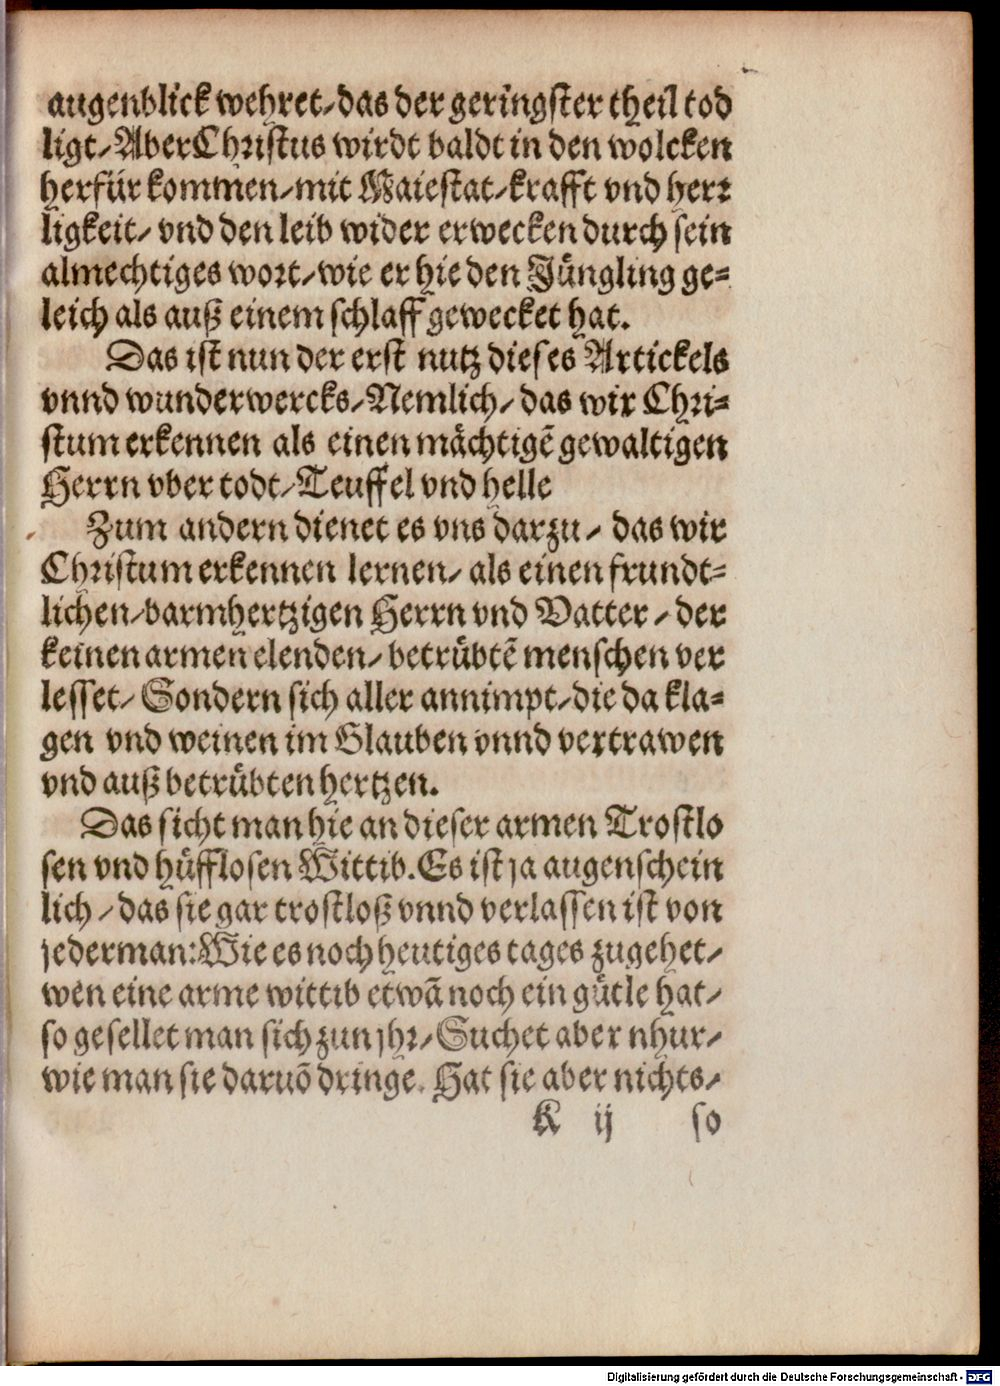 augenblick wehret/ das der geringster theil tod
ligt/ Aber Christus wirdt baldt in den wolcken
herfür kommen/ mit Maiestat/ krafft vnd herr
ligkeit/ vnd den leib wider erwecken durch sein
almechtiges wort/ wie er hie den Jüngling ge=
leich als auß einem schlaff gewecket hat.
Das ist nun der erst nutz dieses Artickels
vnnd wunderwercks/ Nemlich/ das wir Chri=
stum erkennen als einen mächtigē gewaltigen
Herrn vber todt/ Teuffel vnd helle
Zum andern dienet es vns darzu/ das wir
Christum erkennen lernen/ als einen frundt=
lichen/ barmhertzigen Herrn vnd Vatter/ der
keinen armen elenden/ betrübtē menschen ver
lesset/ Sondern sich aller annimpt/ die da kla=
gen vnd weinen im Glauben vnnd vertrawen
vnd auß betrübten hertzen.
Das sicht man hie an dieser armen Trostlo
sen vnd hüfflosen Wittib. Es ist ja augenschein
lich/ das sie gar trostloß vnnd verlassen ist von
jederman: Wie es noch heutiges tages zugehet/
wen eine arme wittib etwā noch ein gütle hat/
so gesellet man sich zun jhr/ Suchet aber nhur/
wie man sie daruō dringe. Hat sie aber nichts/
K ij so
Digitalisierung gefördert durch die Deutsche Forschungsgemeinschaft - DFG